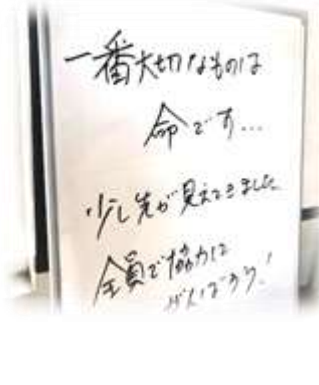 一番大切なものは
命です...
少し先が見えてきました
全員で協力し
がんばろう!